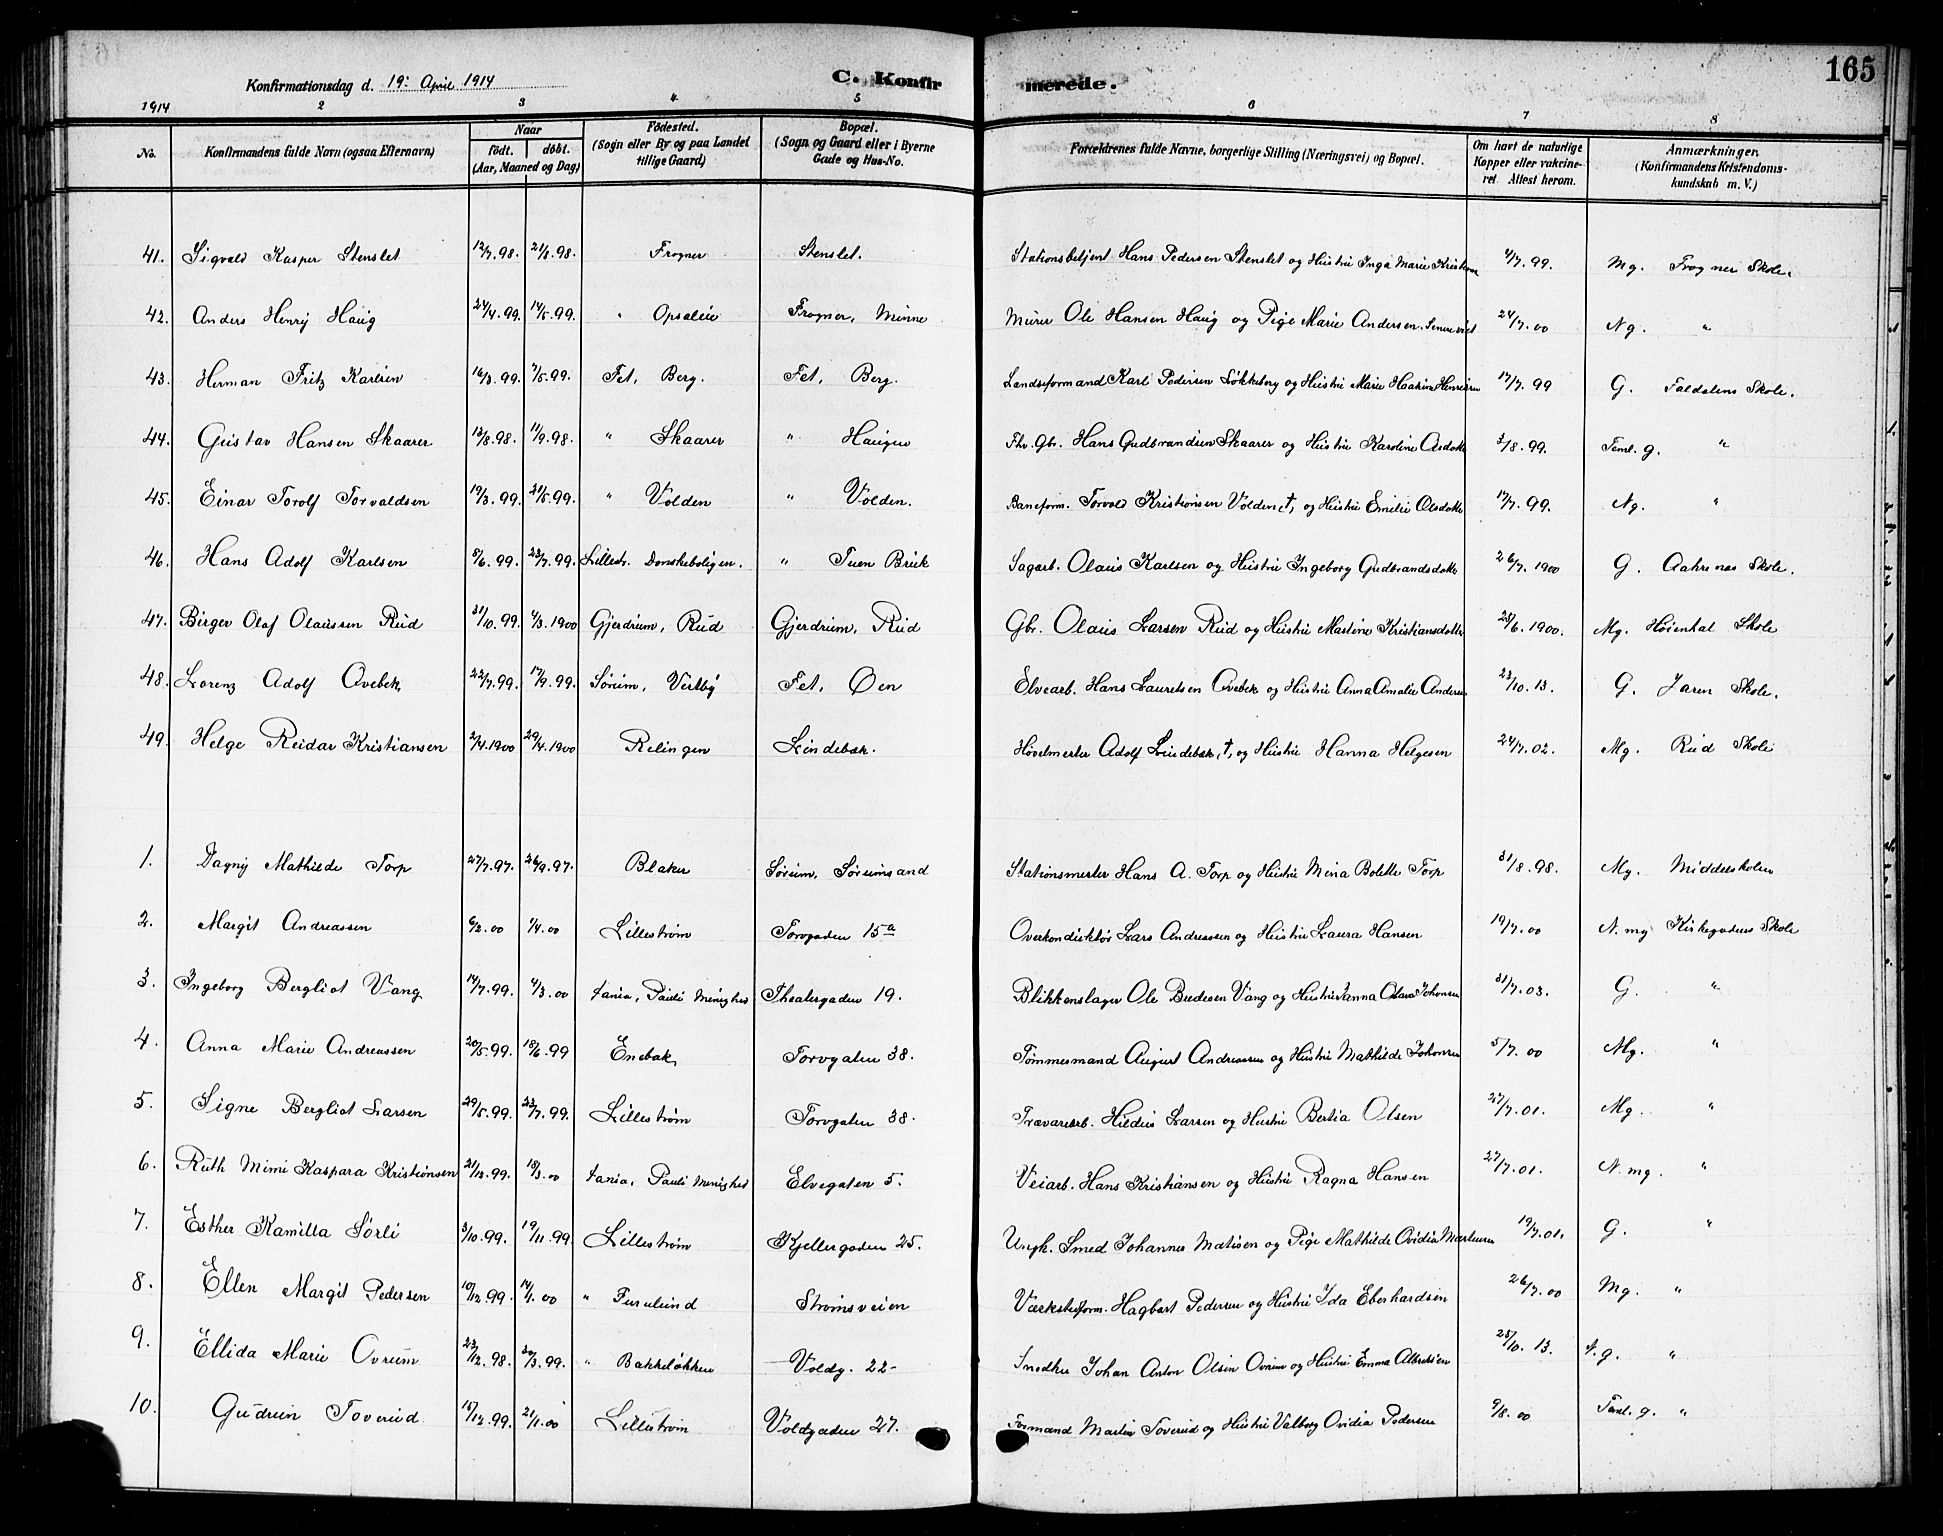 165
Konfirmationsdag d. 19: April 1914 C. Konfirmerede.
1914 2 3 4 5 6 7 8
No. Konfirmandens fulde Navn (ogsaa Efternavn) Naar født. døbt. (Aar, Maaned og Dag) Fødested. (Sogn eller By og paa Landet tillige Gaard) Bopæl. (Sogn og Gaard eller i Byerne Gade og Hus-No. Forældrenes fulde Navne, borgerlige Stilling (Næringsvei) og Bopæl. Om havt de naturlige Kopper eller vakcineret. Attest herom. Anmærkninger. (Konfirmandens Kristendomskundskab m. V.)
41. Sigvald Kasper Stenslet 12/7.98. 21/8.98. Frogner Stenslet. Stationsbetjent Hans Pedersen Stenslet og Hustru Inga Marie 4/7.99. Mg. Frogner Skole.
42. Anders Henry Haug 24/4.99. 14/5.99. " Opsaleie Frogner, Minne Murer Ole Hansen Haug og Pige Marie Andersen 24/7.00 Ng. "
43. Herman Fritz Karlsen 16/3.99. 7/5.99. Fet, Berg. Fet, Berg. Landseformand Karl Pedersen Løkkeberg og Hustru Marie 17/7.99 G. Faldalens Skole.
44. Gustav Hansen Skaarer 13/8.98. 11/9.98. " Skaarer " Haugen Fhv. Gbr. Hans Gudbrandsen Skaarer og Hustru Karoline 3/8.99. Teml. g. "
45. Einar Torolf Torvaldsen 19/3.99. 21/5.99. " Volden " Volden. Baneform. Torvald Kristiansen Volden, †, og Hustru Emilie Olsdotter 17/7.99. Ng. "
46. Hans Adolf Karlsen 5/6.99. 23/7.99. Lillestr. Donskeboligen. " Tuen Bruk Sagarb. Olaus Karlsen og Hustru Ingeborg Gudbrandsdotter 26/7.1900 G. Aahrenas Skole.
47. Birger Olaf Olaussen Rud 31/10.99. 4/3.1900 Gjerdrum, Rud Gjerdrum, Rud Gbr. Olaus Larsen Rud og Hustru Martine Kristiansdotter 25/6.1900. Mg. Høienhal Skole
48. Lorenz Adolf Ovebek 22/7.99. 17/9.99. Sørum, Vestby Fet, Øen Elvearb. Hans Lauretsen Ovebek og Hustru Anna Amalie Andersen 23/10.13. G. Jaren Skole.
49. Helge Reidar Kristiansen 2/4.1900 29/4.1900 Relingen Lindebæk. Høvelmester Adolf Lindebæk, †, og Hustru Hanna Helgesen 24/7.02. Mg. Rud Skole
1. Dagny Mathilde Torp 27/7.97. 26/9.97. Blaker Sørum, Sørumsand Stationsmester Hans A. Torp og Hustru Mina Bolette Torp 31/8.98. Mg. Middelskolen
2. Margit Andreassen 6/2.00 1/4.00 Lillestrøm Torvgaden 15a Overkonduktør Lars Andreassen og Hustru Laura Hansen 19/7.00 N. mg Kirkegadens Skole
3. Ingeborg Bergliot Vang 14/7.99. 4/3.00 Kania, Pauli Menighed Theatergaden 19. Blikkenslager Ole Bredesen Vang og Hustru Janna Johansen 31/7.03. G. "
4. Anna Marie Andreassen 20/5.99. 18/6.99 Enebak, Torvgaten 38. Tømmermand August Andreassen og Hustru Mathilde Johansen 5/7.00 Mg. "
5. Signe Bergliot Larsen 29/5.99. 23/7.99. Lillestrøm Torvgaten 38. Trævarearb. Hildus Larsen og Hustru Bertia Olsen 27/7.01. Mg. "
6. Ruth Mimi Kaspara Kristiansen 21/12.99. 18/3.00 Kania, Pauli Menighed Elvegaten 5. Veiarb. Hans Kristiansen og Hustru Ragna Hansen 27/7.01. N. mg. "
7. Esther Kamilla Sørli 3/10.99. 19/11.99. Lillestrøm Kjellergaden 25. Ungk. Smed Johannes Matisen og Pige Mathilde Ovidia 19/7.01. G. "
8. Ellen Margit Pedersen 10/12.99. 14/1.00 " Furulund Strømsveien Værkstedsform. Hagbart Pedersen og Hustru Ida Eberhardsen 26/7.00 Mg. "
9. Ellida Marie Ovrum 23/12.98. 30/3.99. " Bakkeløkken Voldg. 22- Snedker Johan Anton Olsen Ovrum og Hustru Emma Albretsen 25/10.13. g. "
10. Gudrun Toverud 15/12.99. 21/1.00 Lillestrøm Voldgaden 27. Formand Martin Toverud og Hustru Valborg Ovidia Pedersen 9/8.00 Teml. g. "